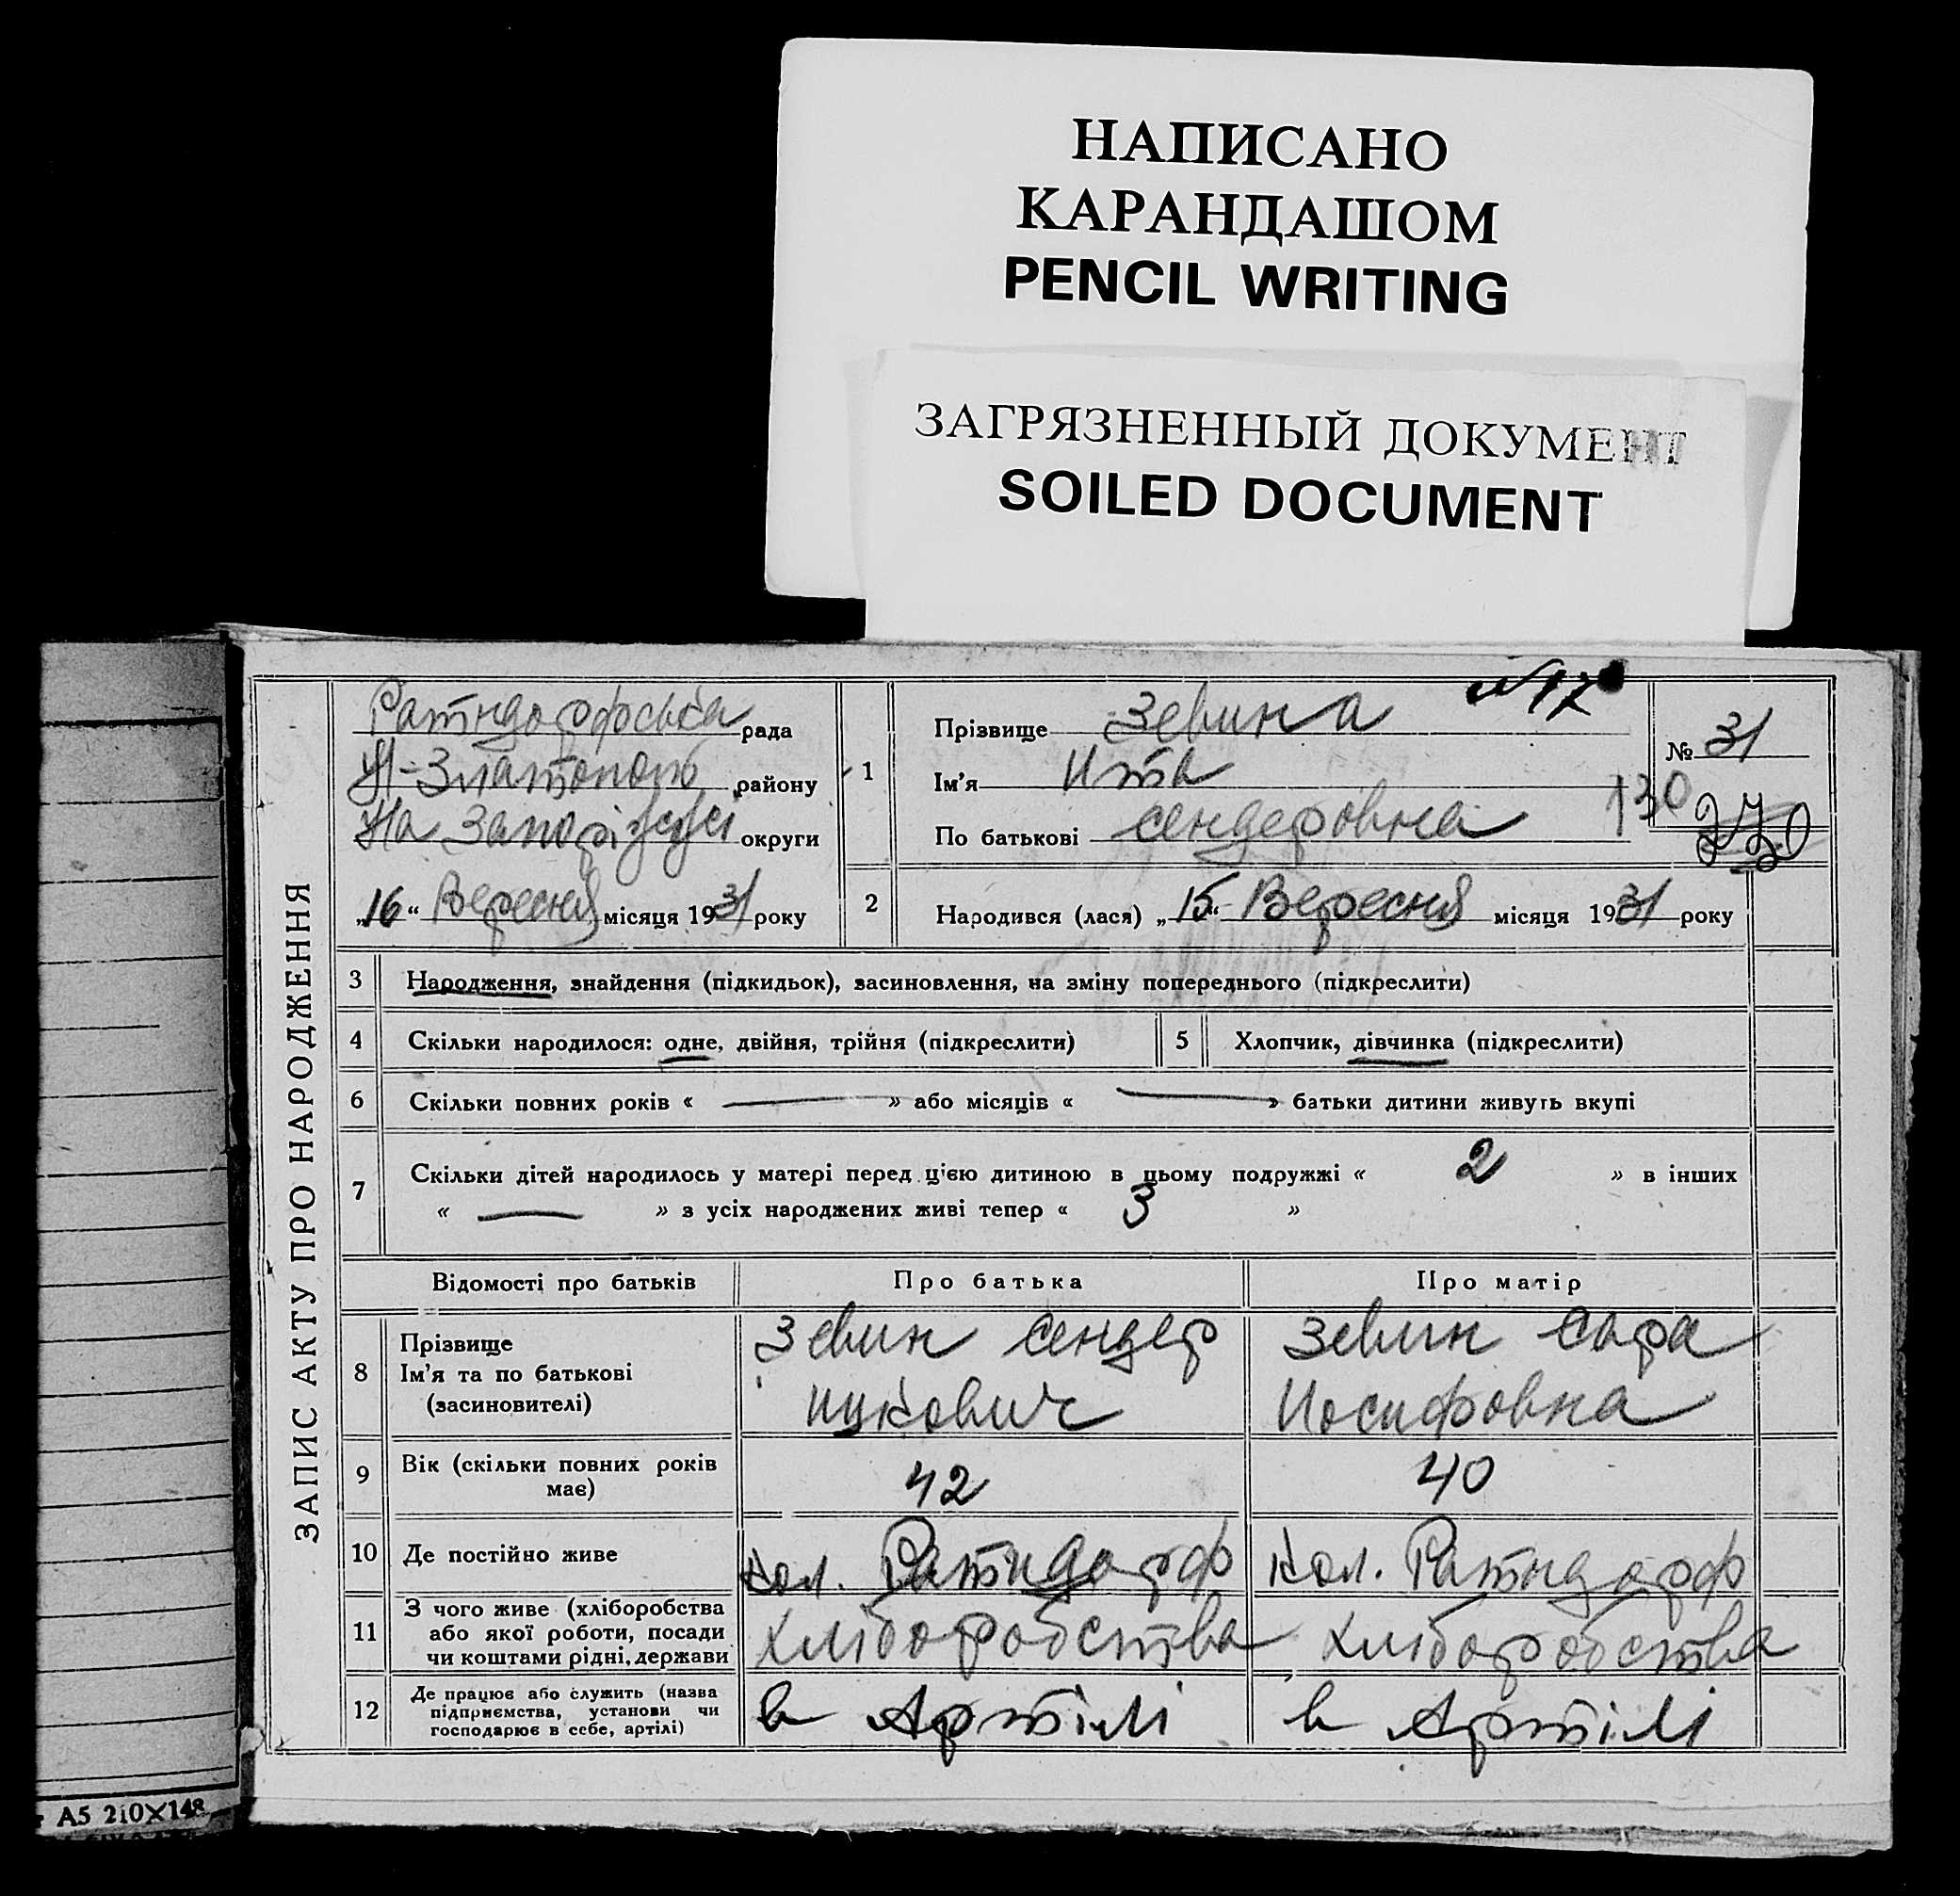 НАПИСАНО
КАРАНДАШОМ
PENCIL WRITING
ЗАГРЯЗНЕННЫЙ ДОКУМЕНТ
SOILED DOCUMENT
ЗАПИС АКТУ ПРО НАРОДЖЕННЯ
Ратндорфська рада
Н-Златополь району
На Запоріжжі округи
„16“ Вересня місяця 1931 року
1
Прізвище Зевина
N 17
№ 31
Ім'я Ита
130
270
По батькові Сендеровна
2
Народився (лася) „15“ Вересня місяця 1931 року
3 Народження, знайдення (підкидьок), засиновлення, на зміну попереднього (підкреслити)
4 Скільки народилося: одне, двійня, трійня (підкреслити) 5 Хлопчик, дівчинка (підкреслити)
6 Скільки повних років « — » або місяців « — » батьки дитини живуть вкупі
7 Скільки дітей народилось у матері перед цією дитиною в цьому подружжі « 2 » в інших
« — » з усіх народжених живі тепер « 3 »
Відомості про батьків Про батька Про матір
8 Прізвище
Ім'я та по батькові
(засиновителі)
Зевин Сендер
Ицкович
Зевин Сара
Иосифовна
9 Вік (скільки повних років
має)
42 40
10 Де постійно живе кол. Ратндорф кол. Ратндорф
11 З чого живе (хліборобства
або якої роботи, посади
чи коштами рідні, держави
хліборобства хліборобства
12 Де працює або служить (назва
підприємства, установи чи
господарює в себе, артілі)
в Артілі в Артілі
А5 210×148